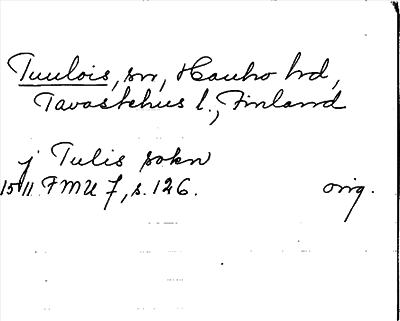 Tuulois, sn, Hauho hd,
Tavastehus l., Finland
j Tulis sokn
1511 FMU 7, s. 126. orig.